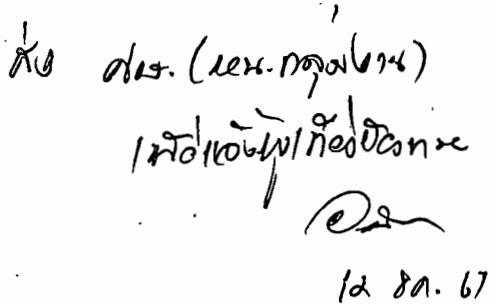 ส่ง ศษ. (หน.กลุ่มงาน)
เพื่อแจ้งผู้เกี่ยวข้องทราบ
12 ธค. 67